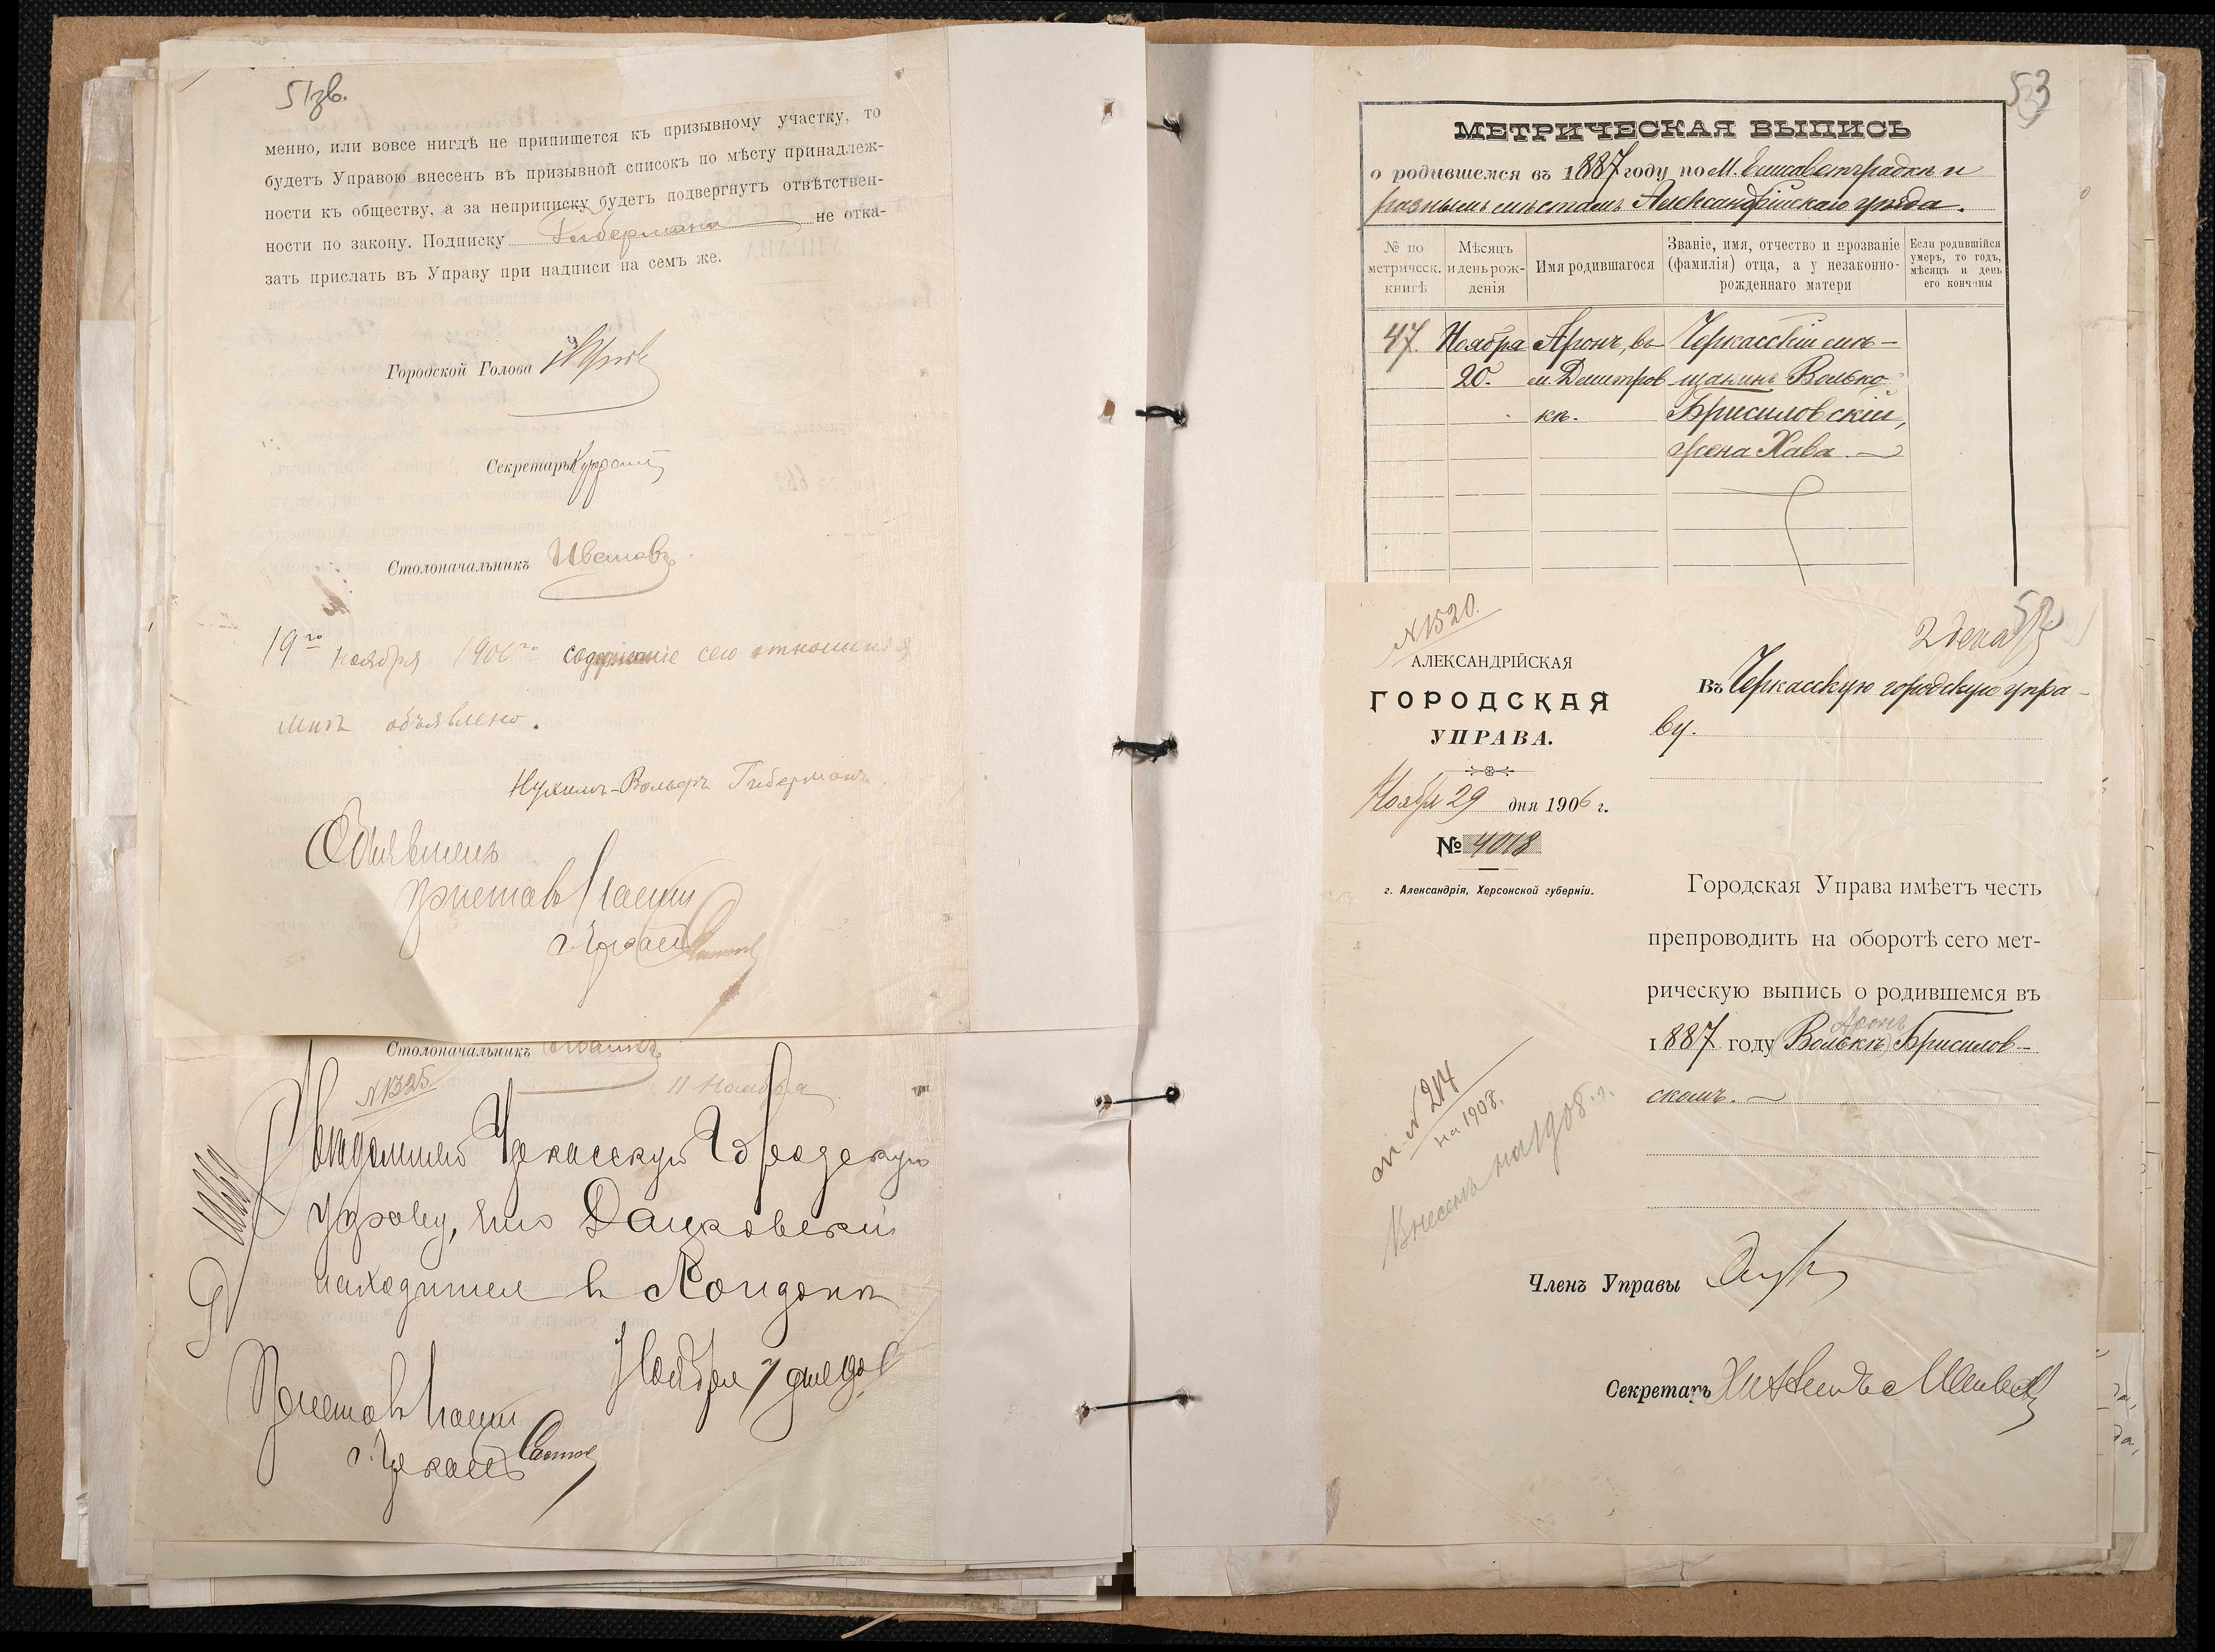 51зв.
менно, или вовсе нигдѣ не припишется къ призывному участку, то
будетъ Управою внесенъ въ призывной списокъ по мѣсту принадлеж-
ности къ обществу, а за неприписку будетъ подвергнутъ отвѣтствен-
ности по закону. Подписку Гибермана не отка-
зать прислать въ Управу при надписи на семъ же.
Городской Голова
Секретарь
Столоначальникъ Ивановъ
19го ноября 1906го содержаніе сего отношенія
мнѣ объявлено.
Нухимъ-Вольфъ Гиберманъ
Объявилъ
Приставъ части
г. Черкассъ
Столоначальникъ
№1325
11 Ноября
Увѣдомляю Черкасскую Городскую
Управу, что Данковскій
находится в Лондонѣ
Ноября 7 дня 906
Приставъ части
г. Черкассъ
53
МЕТРИЧЕСКАЯ ВЫПИСЬ
о родившемся въ 1887 году по м. Елисаветградкѣ и
разнымъ мѣстамъ Александрійскаго уѣзда.
№ по метрическ. книгѣ
Мѣсяцъ и день рож- денія
Имя родившагося
Званіе, имя, отчество и прозваніе (фамилія) отца, а у незаконно- рожденнаго матери
Если родившійся умеръ, то годъ, мѣсяцъ и день его кончины
47. Ноября Аронъ, въ Черкасскій мѣ-
20. м. Дмитров щанинъ Волько
кѣ. Брисиловскій,
жена Хава
№1520.
2 дека
52
АЛЕКСАНДРІЙСКАЯ
ГОРОДСКАЯ
УПРАВА.
Ноября 29 дня 1906 г.
№ 4018
г. Александрія, Херсонской губерніи.
Въ Черкасскую городскую упра-
ву.
Городская Управа имѣетъ честь
препроводить на оборотѣ сего мет-
рическую выпись о родившемся въ
Аронъ
1887 году (Волькѣ) Брисилов-
скомъ.
№ 214
на 1908.
Внесенъ на 1908 г.
Членъ Управы
Секретарь